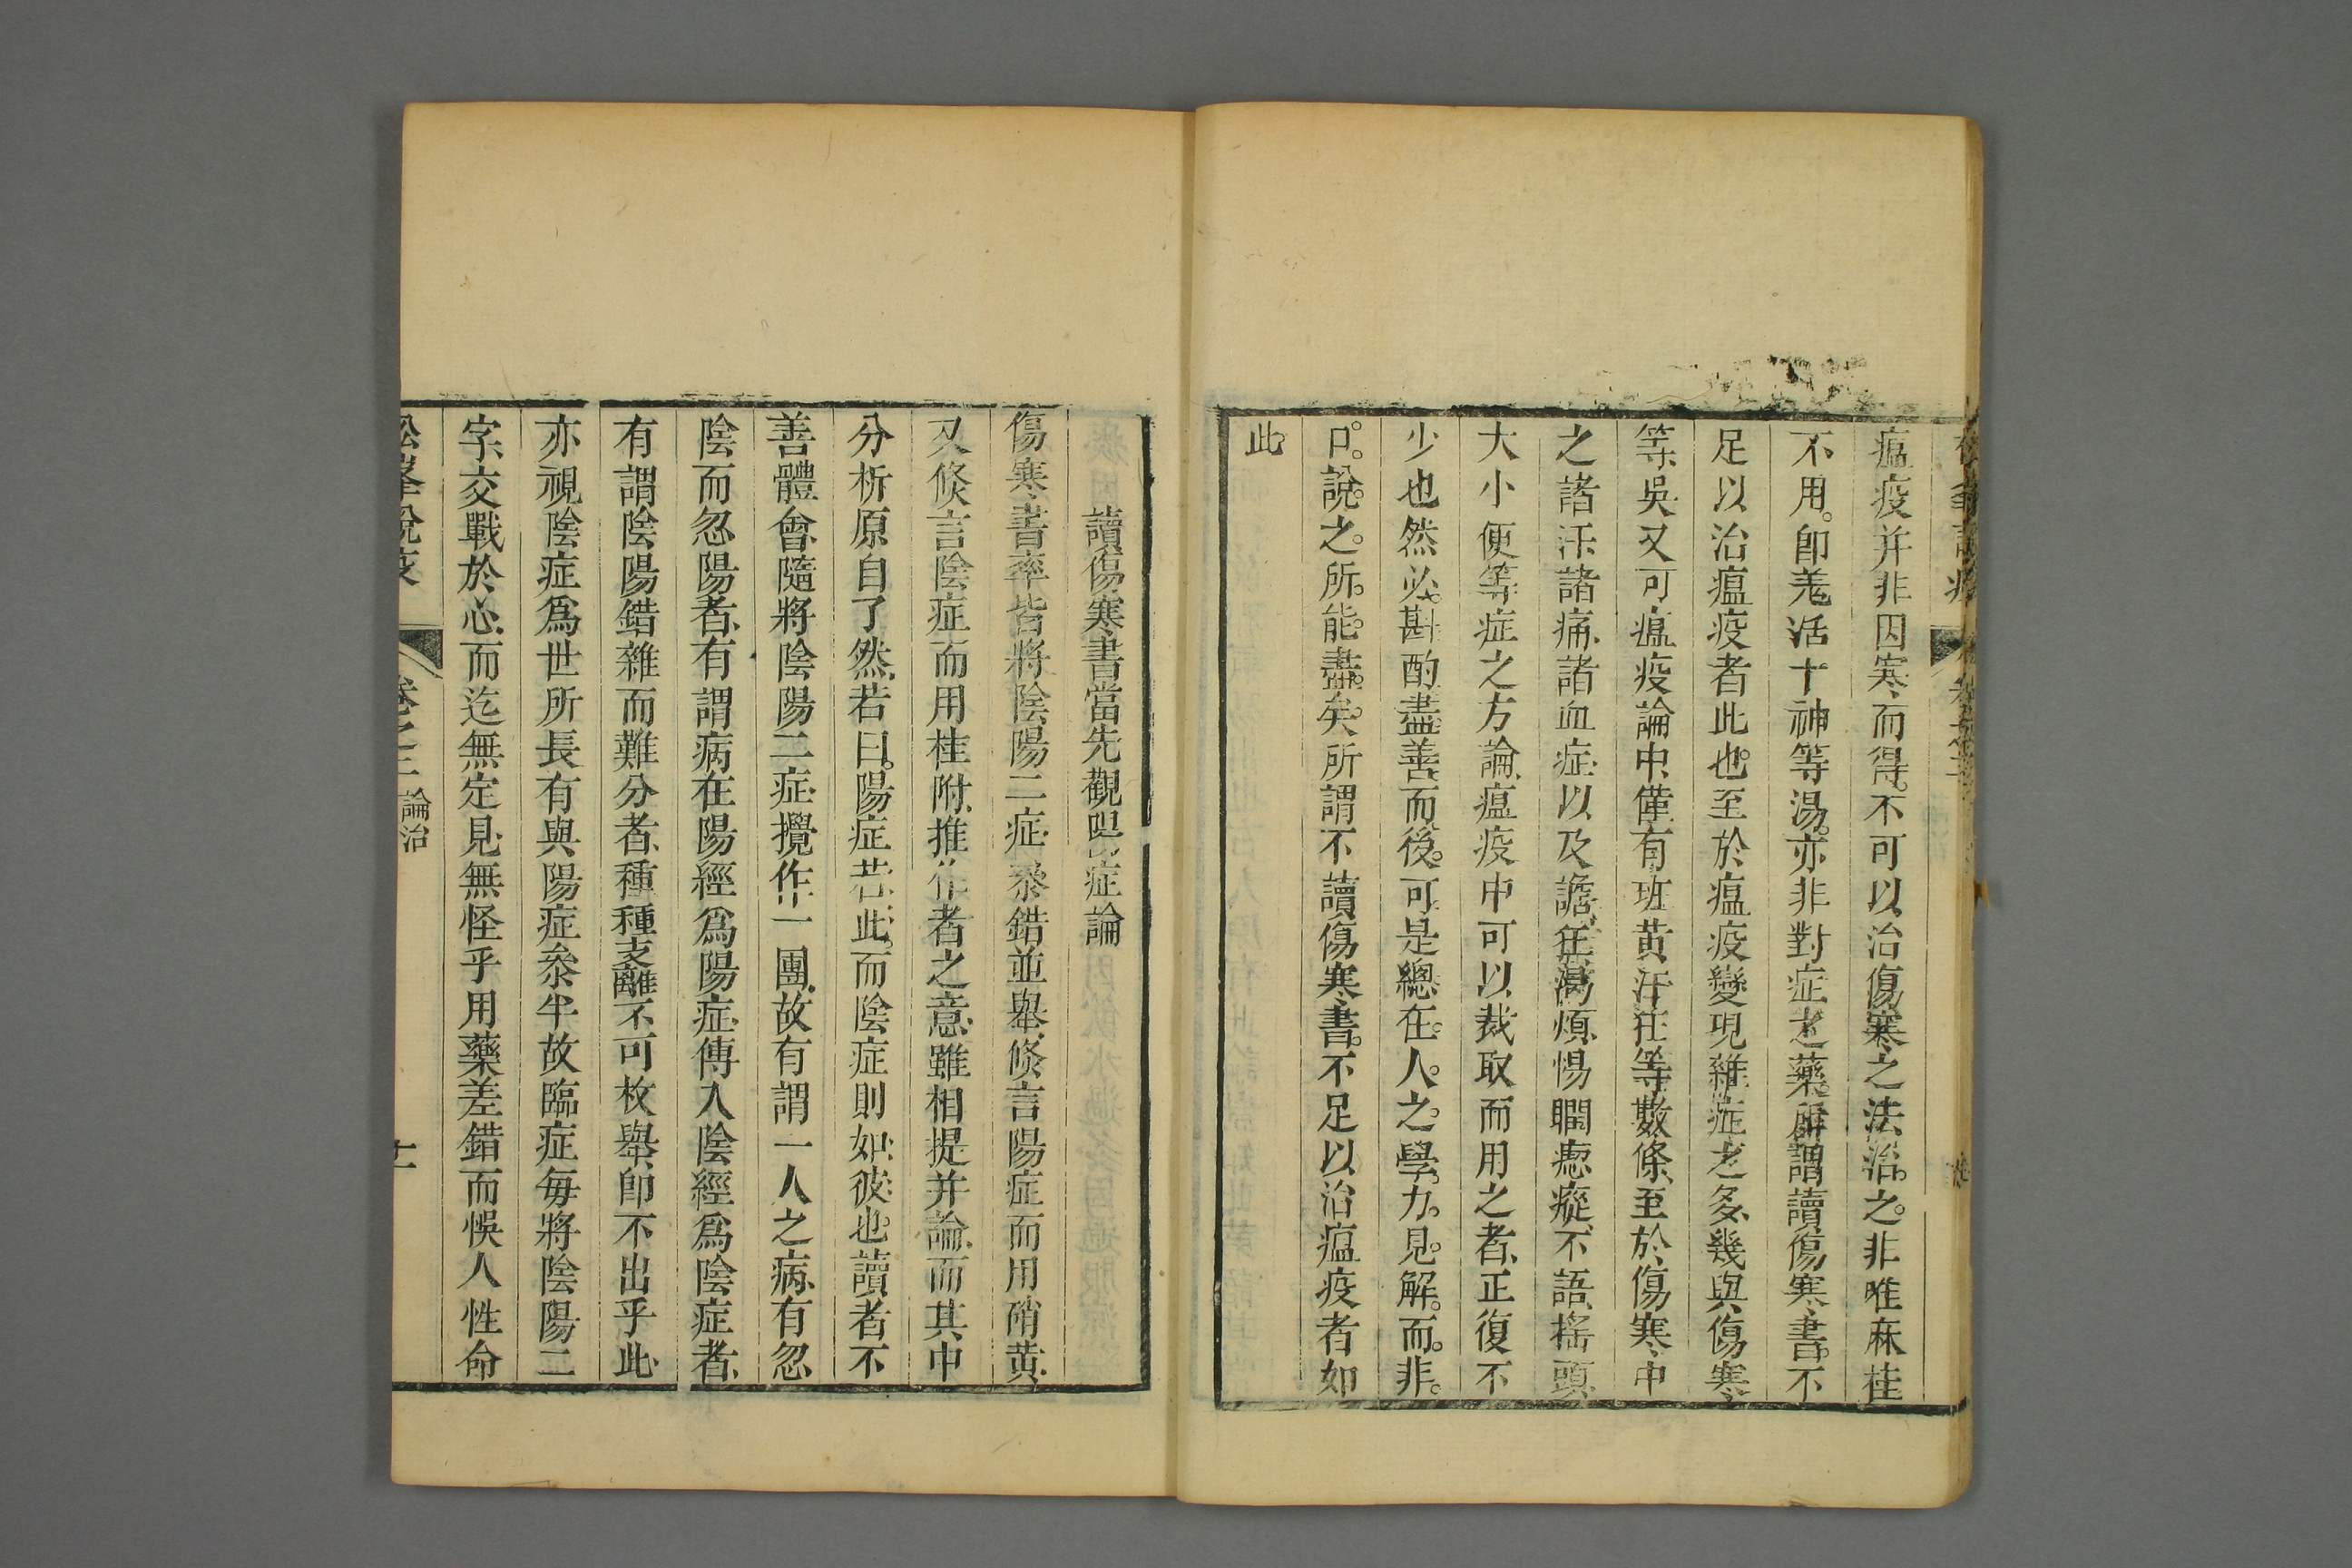 瘟疫并非因寒而得不可以治傷寒之法治之。非唯麻桂
不用。卽羗活十神等湯。亦非對症之藥。所謂讀傷寒書。不
足以治瘟疫者此也。至於瘟疫變現雜症之多、幾與傷寒
等、吳又可瘟疫論中、僅有班黃汗狂等數條、至於傷寒中
之諸汗、諸痛、諸血症、以及譫狂、渴煩、惕瞤、瘛瘲、不語、搖頭、
大小便等症之方論、瘟疫中可以裁取而用之者、正復不
少也然必。斟酌盡善而後。可。是總在。人。之。學。力。見。解。而。非。
口。說。之。所。能。盡。矣。所謂不讀傷寒書。不足以治瘟疫者如
此
讀傷寒書當先觀陽症論
傷寒書率皆將陰陽二症、叅錯並舉、倐言陽症而用硝黃、
又倐言陰症而用桂附、推作者之意、雖相提并論、而其中
分析原自了然、若曰。陽症若此。而陰症則如彼也讀者不
善體會、隨將陰陽二症、攪作一團、故有謂一人之病、有忽
陰而忽陽者、有謂病在陽經爲陽症、傳入陰經爲陰症者、
有謂陰陽錯雜而難分者、種種支離、不可枚舉、卽不出乎此、
亦視陰症爲世所長有、與陽症叅半故臨症每將陰陽二
字、交戰於心、而迄無定見、無怪乎用藥差錯而悞人性命
松峯說疫 卷之二 論治